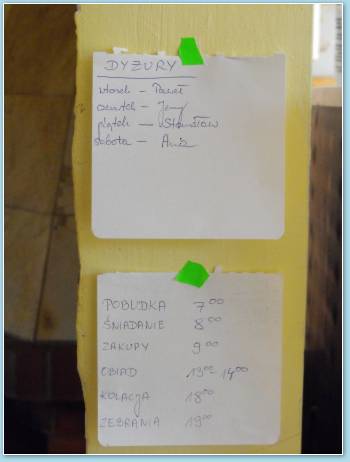 DYŻURY
wtorek - Paweł
czwartek - Jerzy
piątek - Stanisław
sobota - Ania
POBUDKA 7⁰⁰
ŚNIADANIE 8⁰⁰
ZAKUPY 9⁰⁰
OBIAD 13⁰⁰ - 14⁰⁰
KOLACJA 18⁰⁰
ZEBRANIA 19⁰⁰